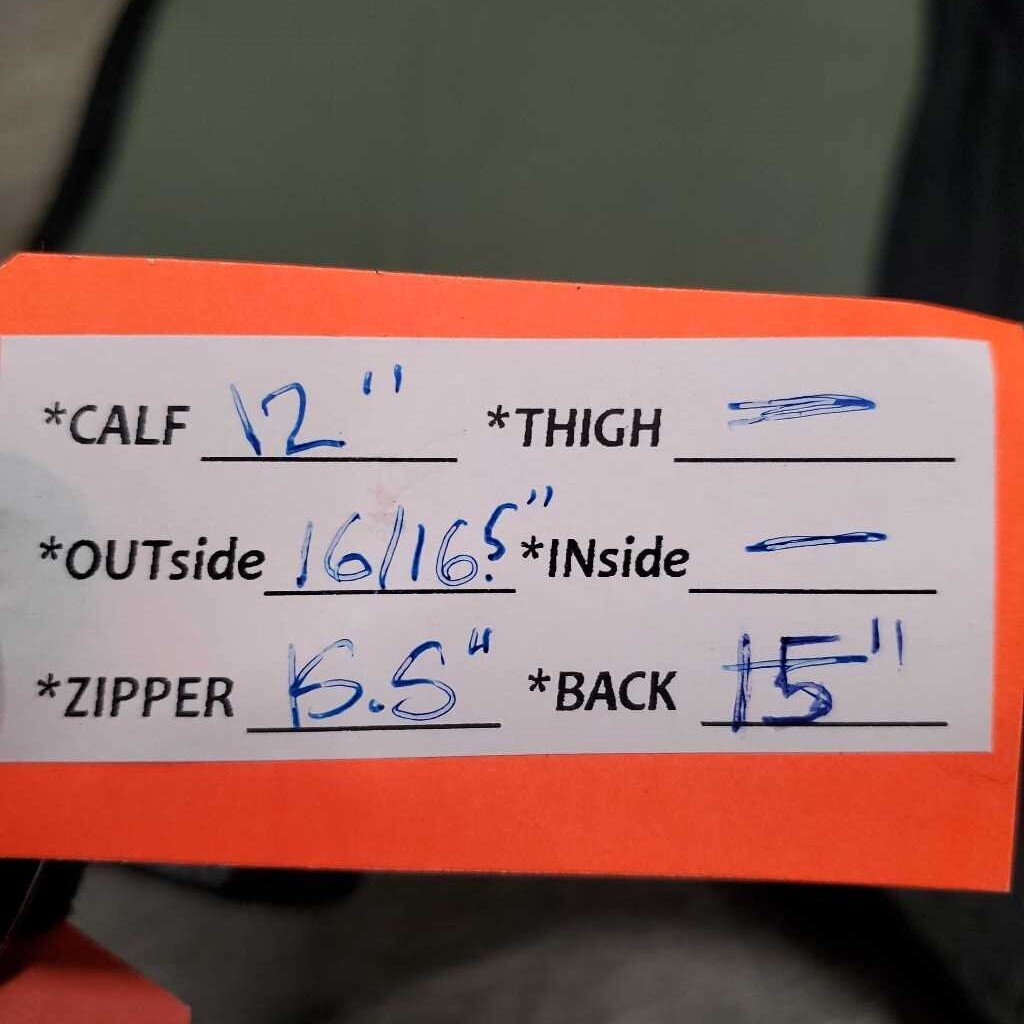 *CALF 12" *THIGH —
*OUTside 16/16.5" *INside —
*ZIPPER 15.5" *BACK 15"